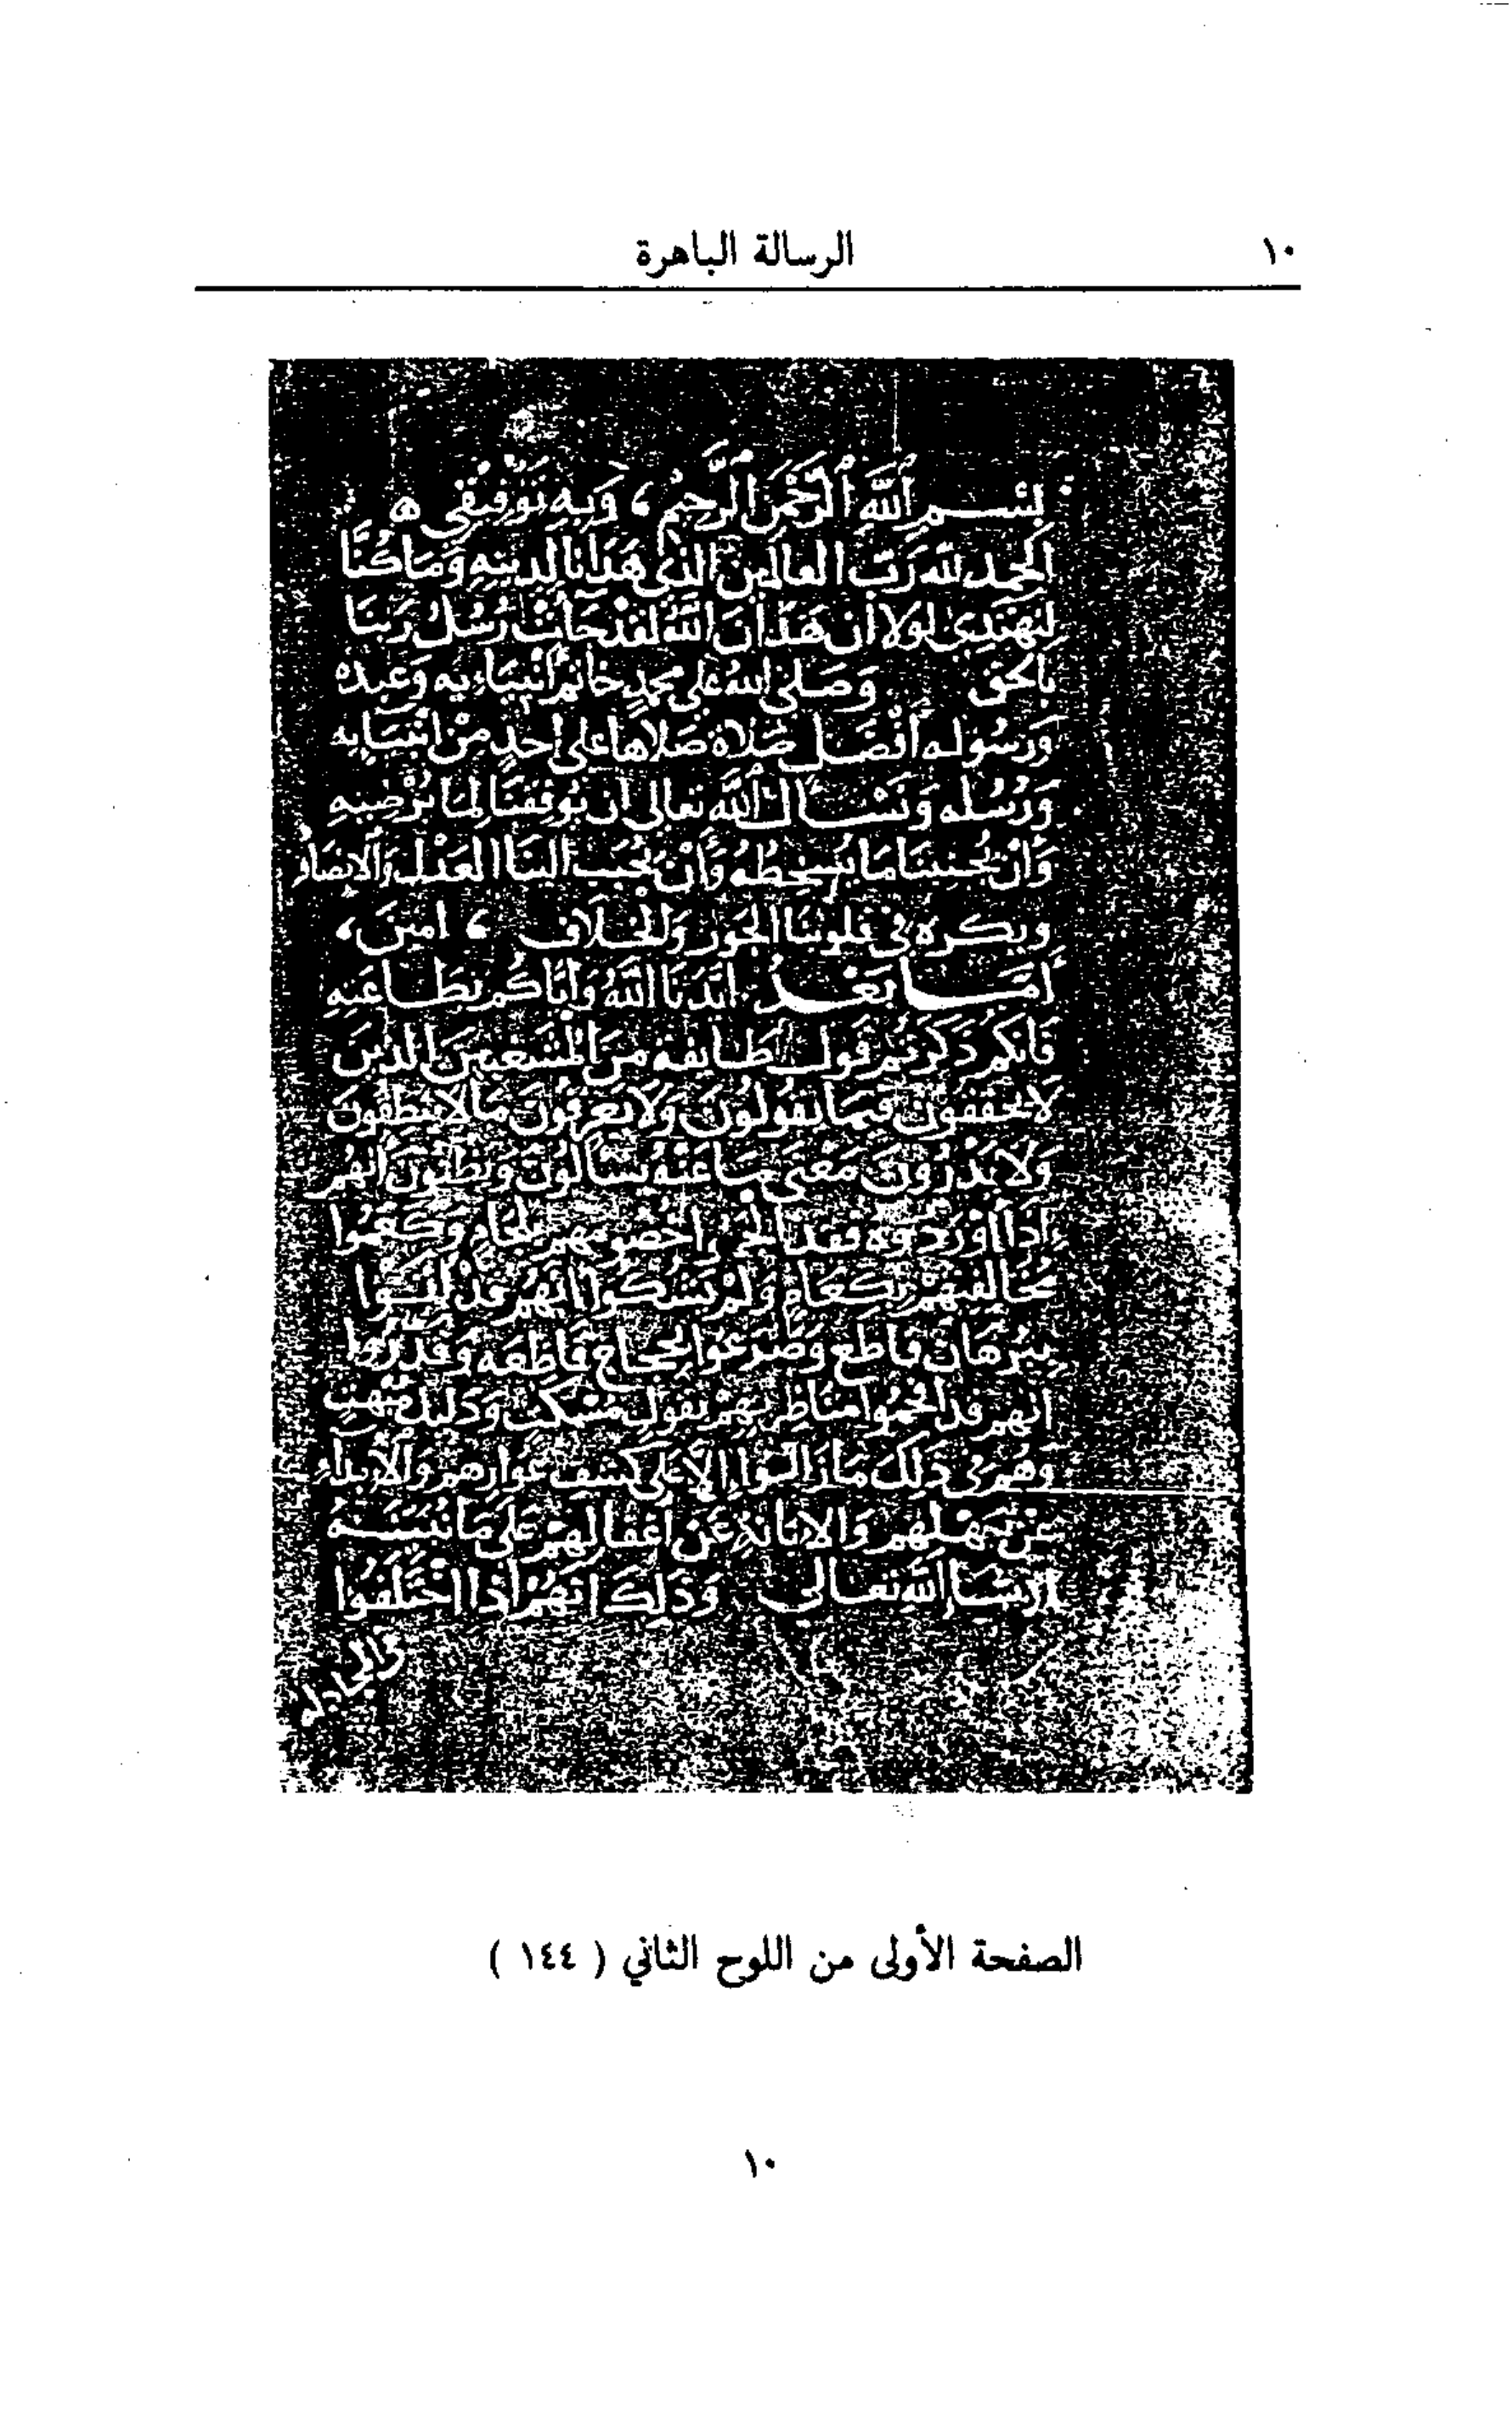 ١٠
الرسالة الباهرة
بِسْمِ اللَّهِ الرَّحْمَنِ الرَّحِيمِ ، وَبِهِ تَوْفِيقِي ه
الحمد لله رَبّ العالمين الذي هَدَانَا لدينِهِ وَمَا كُنَّا
لِنَهْتَدِيَ لَولا أن هَدَانَا اللَّهُ لقد جَآءَتْ رُسُلُ رَبِّنَا
بالحق وَصَلى اللهُ عَلَى محمدٍ خاتم أَنْبِيَاءِيه وَعَبده
وَرسُوله أفْضَل صَلاة صَلاها على أحدٍ مِنْ انبيَايه
وَرُسُله وَنَسْأَل اللَّه تعالى ان يُوفِقنَا لِمَا يُرْضِيهِ
وَأن يُجنِبنَا مَا يُسخِطُهُ وَأَنْ يُحَبِّبَ الينَا العَدْلَ وَالإنصَاف
ويكره في قلوبنَا الجَور وَالخِلَاف ، امين ،
أمَّا بَعْدُ ايَّدَنَا اللَّهُ وَايَّاكُم بِطَاعَتِهِ
فَانكم ذَكَرْتُم قَول طَايفة مِنَ المشغبينَ الذينَ
لا يحققونَ فيمَا يَقُولُونَ وَلا يَعرفُونَ مَا لا يَنطِقُونَ
وَلا يَدْرُونَ مَعْنَى مَا عَنْهُ يُسْأَلُونَ وَيَظُنُّونَ أنهُم
إذا أَوْرَدُوهُ فقد الجَموا خُصُومهم بلجَام وَكَعَمُوا
مُخالفيهِمْ بِكعَامٍ وَلَمْ يَشُكوا انَّهُم قَدْ أتوا
بِبُرْهَان قاطِع وَصَرَعَوا بحجاج قَاطعَه وَقَدَّرُوا
انهم قد افحمُوا مناظِريهِمْ بقَول مُسْكِتٍ وَدَليل مُبْهِتٍ
وَهم في ذلك مَا زَادُوا إلا عَلى كَشفِ عَوَارهم وَالابدَآءِ
عَن جهلهم وَالابانةِ عَن إغفالِهِمْ عَلَى مَا نُبَيّنُهُ
ان شَآء الله تعَالى وَذلِكَ انهُمْ إذا اختلَفُوا
الصفحة الأولى من اللوح الثاني ( ١٤٤ )
١٠